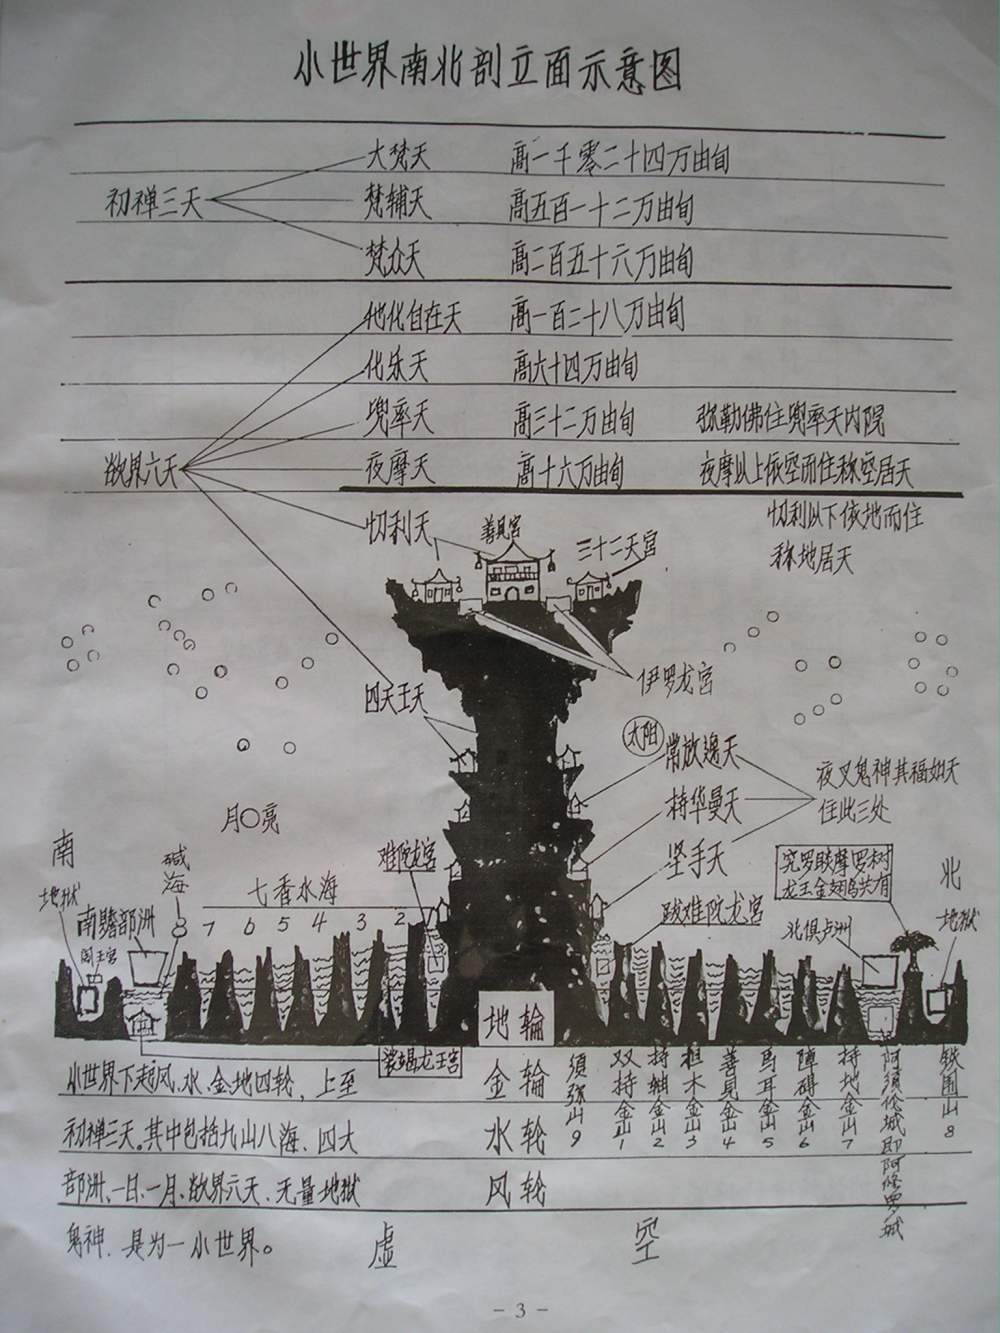 小世界南北剖立面示意图
大梵天 高一千零二十四万由旬
初禅三天 梵辅天 高五百一十二万由旬
梵众天 高二百五十六万由旬
他化自在天 高一百二十八万由旬
化乐天 高六十四万由旬
兜率天 高三十二万由旬 弥勒佛住兜率天内院
欲界六天 夜摩天 高十六万由旬 夜摩以上依空而住称空居天
忉利天 善见宫 三十二天宫
忉利以下依地而住
称地居天
伊罗龙宫
四天王天
太阳
常放逸天
持华曼天
坚手天
夜叉鬼神其福如天
住此三处
月 亮
南
地狱
南贍部洲
阎王宫
碱海
8
七香水海
7 6 5 4 3 2
难陀龙宫
跋难陀龙宫
究罗睒摩罗树
龙王金翅鸟共有
北
北俱卢洲
地狱
娑竭龙王宫
地輪
金輪
水轮
风轮
須弥山9
双持金山1
持轴金山2
担木金山3
善見金山4
马耳金山5
障碍金山6
持地金山7
阿須伦城即阿修罗城
铁围山8
小世界下起风、水、金地四轮,上至
初禅三天。其中包括九山八海、四大
部洲、一日、一月、欲界六天、无量地狱
鬼神、是为一小世界。
虚 空
- 3 -